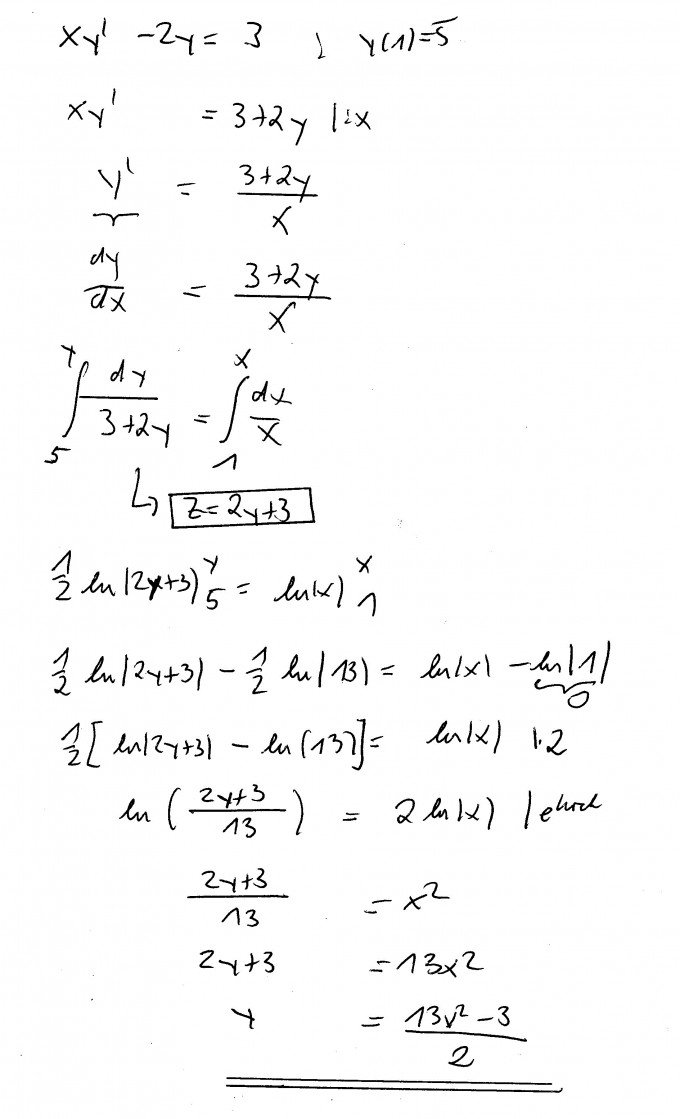 xy' - 2y = 3 ; y(1) = 5
xy' = 3+2y |:x
y' = (3+2y)/x
dy/dx = (3+2y)/x
∫_5^y dy/(3+2y) = ∫_1^x dx/x
↳ z = 2y+3
1/2 ln|2y+3| |_5^y = ln|x| |_1^x
1/2 ln|2y+3| - 1/2 ln|13| = ln|x| - ln|1| 0
1/2 [ln|2y+3| - ln(13)] = ln|x| |·2
ln((2y+3)/13) = 2 ln|x| | e hoch
(2y+3)/13 = x²
2y+3 = 13x²
y = (13x² - 3)/2